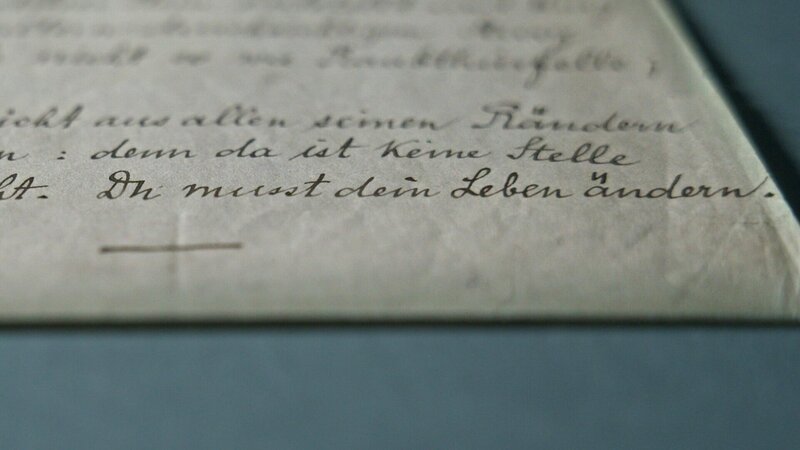 Raubthierfelle;
icht aus allen seinen Rändern
n: denn da ist keine Stelle
ht. Du musst dein Leben ändern.